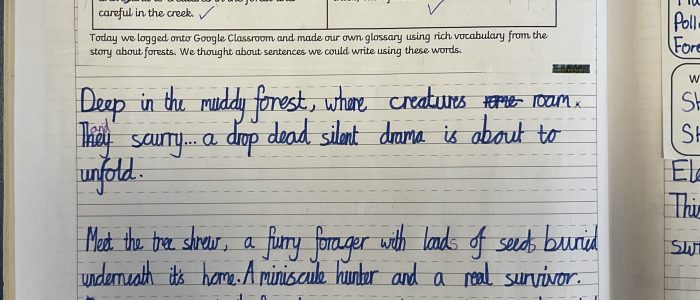 careful in the creek.
Today we logged onto Google Classroom and made our own glossary using rich vocabulary from the
story about forests. We thought about sentences we could write using these words.
Deep in the muddy forest, where creatures rome roam.
and
They scurry... a drop dead silent drama is about to
unfold.
Meet the tree shrew, a furry forager with loads of seeds buried
underneath it's home. A miniscule hunter and a real survivor.